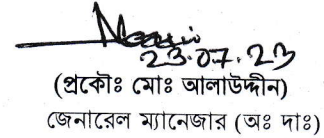 23.07.23
(প্রকৌঃ মোঃ আলাউদ্দীন)
জেনারেল ম্যানেজার (অঃ দাঃ)